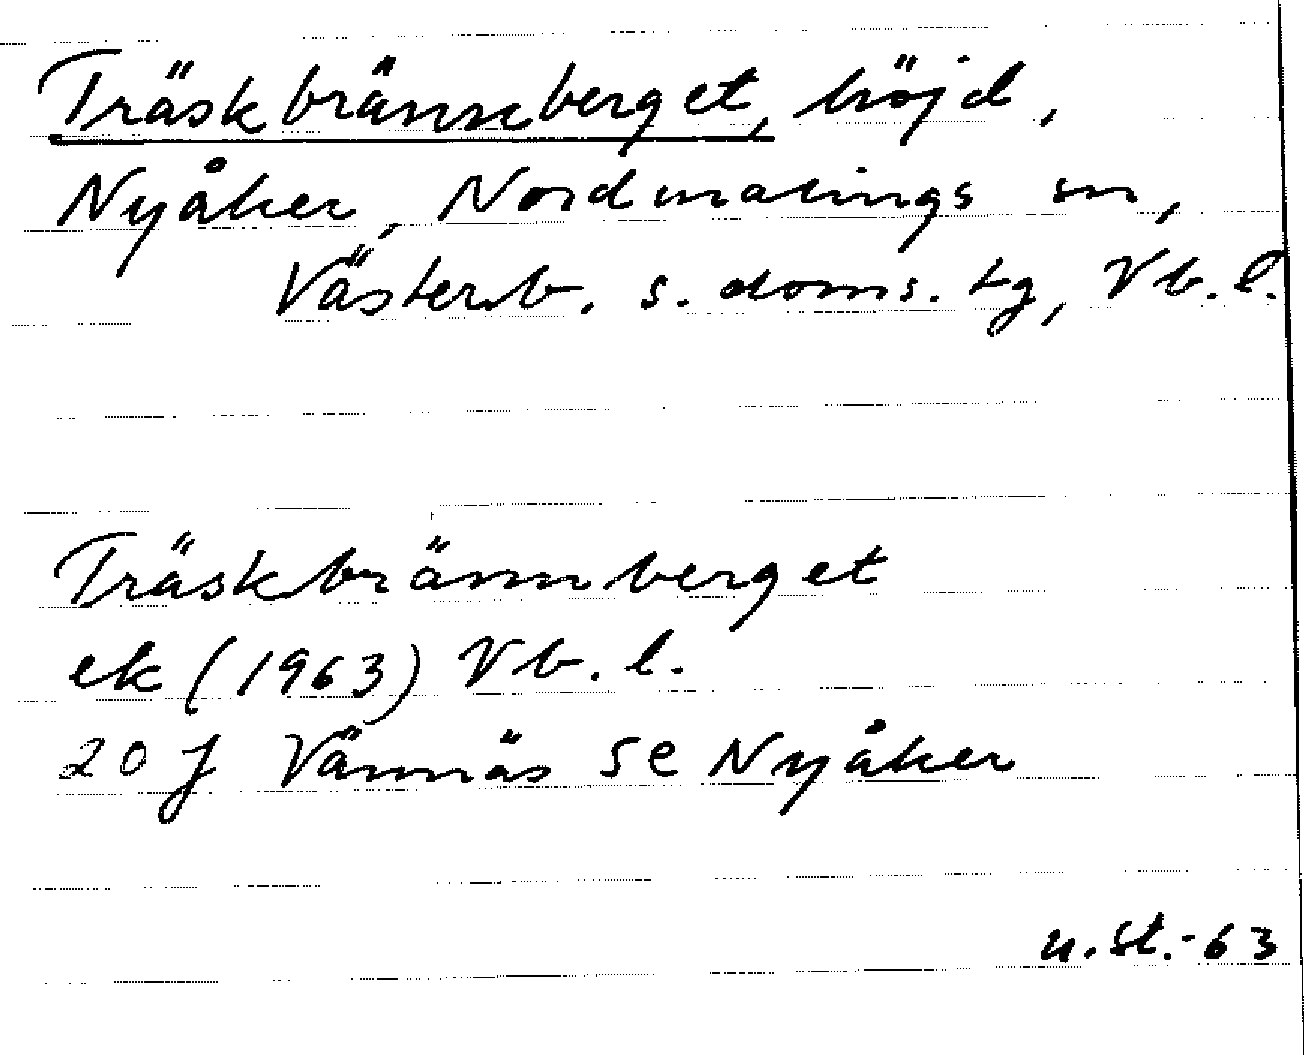 Träskbränneberget, höjd,
Nyåker, Nordmalings sn,
Västerb. s. doms. tg, Vb. l.
Träskbrännberget
ek (1963) Vb. l.
20 J Vännäs SE Nyåker
u. st. - 63